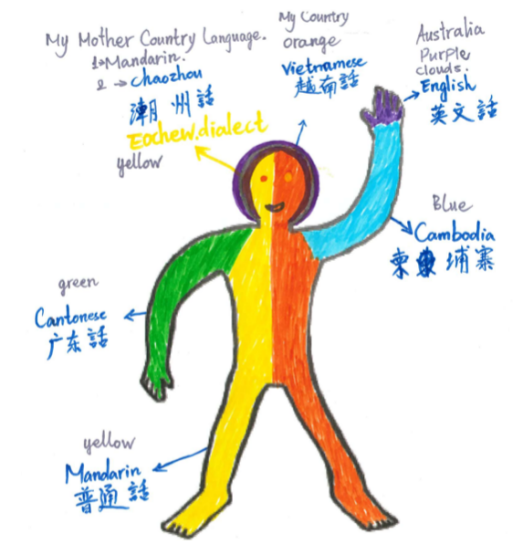 My Mother Country Language.
1→Mandarin.
2 → Chaozhou
潮 州 話
Eochew.dialect
yellow
My Country
orange
Vietnamese
越南話
Australia
Purple
clouds.
English
英文話
Blue
Cambodia
柬 埔寨
green
Cantonese
广东話
yellow
Mandarin
普通話